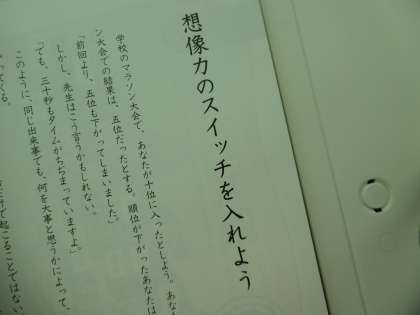 想像力のスイッチを入れよう
学校のマラソン大会で、あなたが十位に入ったとしよう。あな
ン大会での結果は、五位だったとする。順位が下がったあなたは
「前回より、五位も下がってしまいました。」
しかし、先生はこう言うかもしれない。
「でも、三十秒もタイムがちぢまっていますよ。」
このように、同じ出来事でも、何を大事と思うかによって、
ってくる。
だけで起こることではない